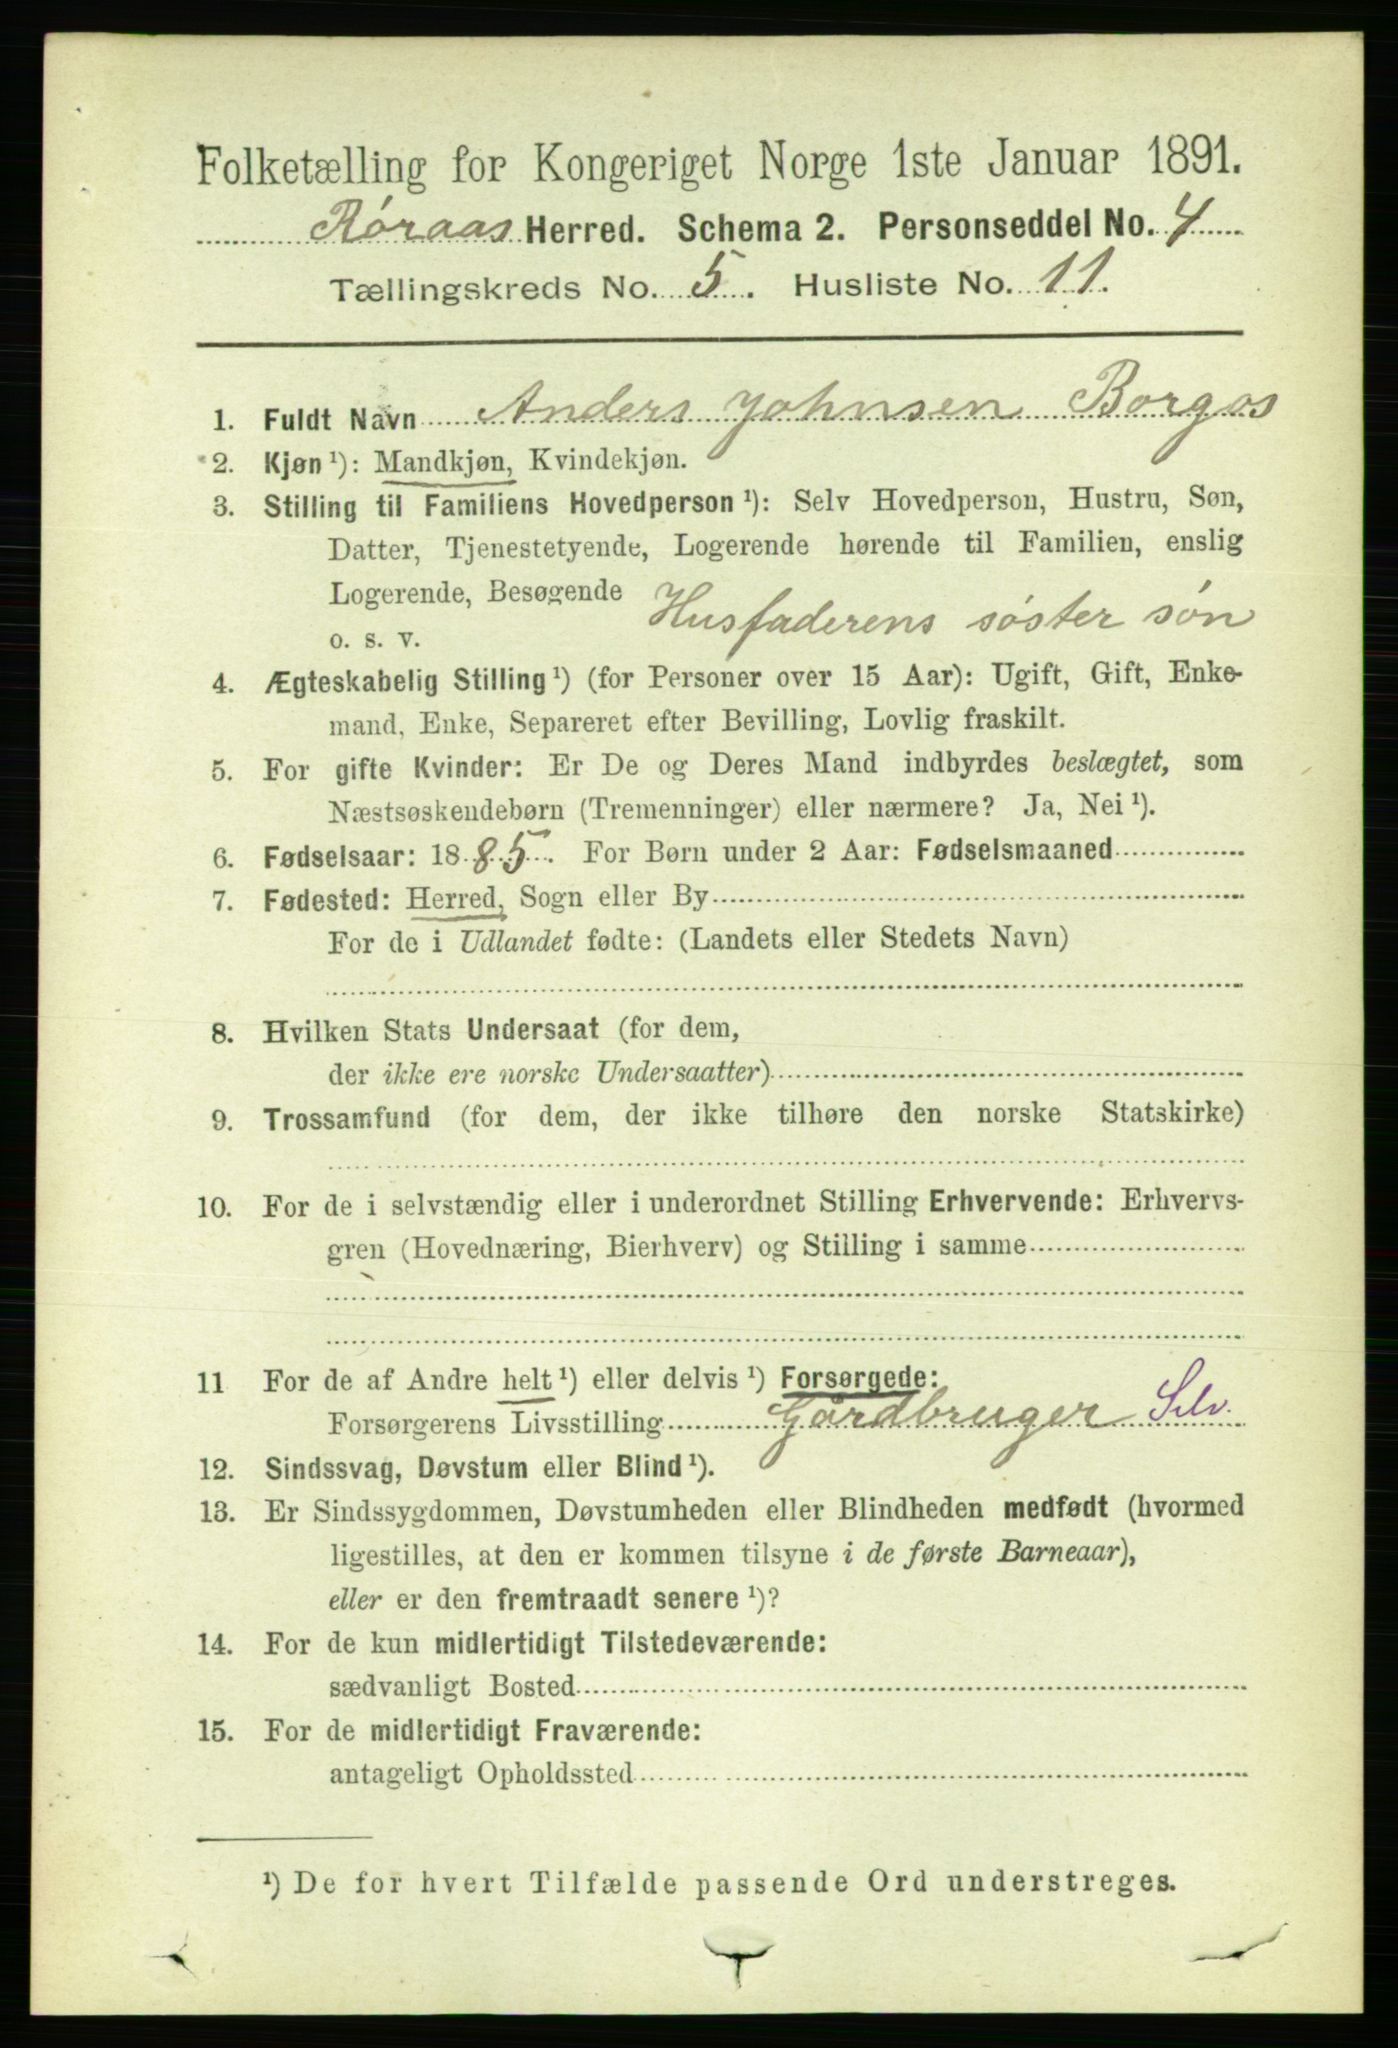 Folketælling for Kongeriget Norge 1ste Januar 1891.
Røraas Herred. Schema 2. Personseddel No. 4
Tællingskreds No. 5. Husliste No. 11.
1. Fuldt Navn Anders Johnsen Borgos
2. Kjøn ¹): Mandkjøn, Kvindekjøn.
3. Stilling til Familiens Hovedperson ¹): Selv Hovedperson, Hustru, Søn,
Datter, Tjenestetyende, Logerende hørende til Familien, enslig
Logerende, Besøgende
o. s. v. Husfaderens søster søn
4. Ægteskabelig Stilling ¹) (for Personer over 15 Aar): Ugift, Gift, Enke-
mand, Enke, Separeret efter Bevilling, Lovlig fraskilt.
5. For gifte Kvinder: Er De og Deres Mand indbyrdes beslægtet, som
Næstsøskendebørn (Tremenninger) eller nærmere? Ja, Nei ¹).
6. Fødselsaar: 1885. For Børn under 2 Aar: Fødselsmaaned
7. Fødested: Herred, Sogn eller By
For de i Udlandet fødte: (Landets eller Stedets Navn)
8. Hvilken Stats Undersaat (for dem,
der ikke ere norske Undersaatter)
9. Trossamfund (for dem, der ikke tilhøre den norske Statskirke)
10. For de i selvstændig eller i underordnet Stilling Erhvervende: Erhvervs-
gren (Hovednæring, Bierhverv) og Stilling i samme
11 For de af Andre helt ¹) eller delvis ¹) Forsørgede:
Forsørgerens Livsstilling Gårdbruger Selv.
12. Sindssvag, Døvstum eller Blind ¹).
13. Er Sindssygdommen, Døvstumheden eller Blindheden medfødt (hvormed
ligestilles, at den er kommen tilsyne i de første Barneaar),
eller er den fremtraadt senere ¹)?
14. For de kun midlertidigt Tilstedeværende:
sædvanligt Bosted
15. For de midlertidigt Fraværende:
antageligt Opholdssted
¹) De for hvert Tilfælde passende Ord understreges.